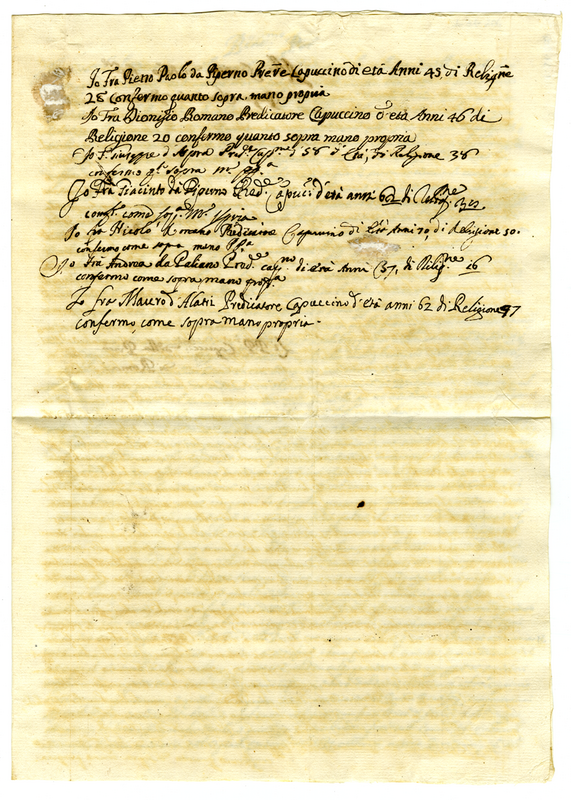 Io Fra Pietro Paolo da Piperno Pre͞re Capuccino di età Anni 45 di Relig͞ne
28 Confermo quanto sopra mano propria
Io Fra Dionisio Romano Predicatore Capuccino d'età Anni 46 di
Religione 20 confermo quanto sopra mano propria
Io F. Giuseppe d' Pred.re Cap.no 58 d' Età, di Religione 38
sopra
Io Fra Giacinto da Piperno Pred.re Capuc.o d'età anni 62 di
come
Io fra Nicolò Romano Predicatore Capuccino di Età Anni 70, di Religione 50.
confermo come sopra mano
Io Fra Andrea da Paliano Pred.re Cap.no di età Anni 37, di Relig.ne 16
confermo come sopra mano
Io fra Mauro d'Alatri Predicatore Capuccino d'età anni 62 di Religione 47
confermo come sopra mano propria.